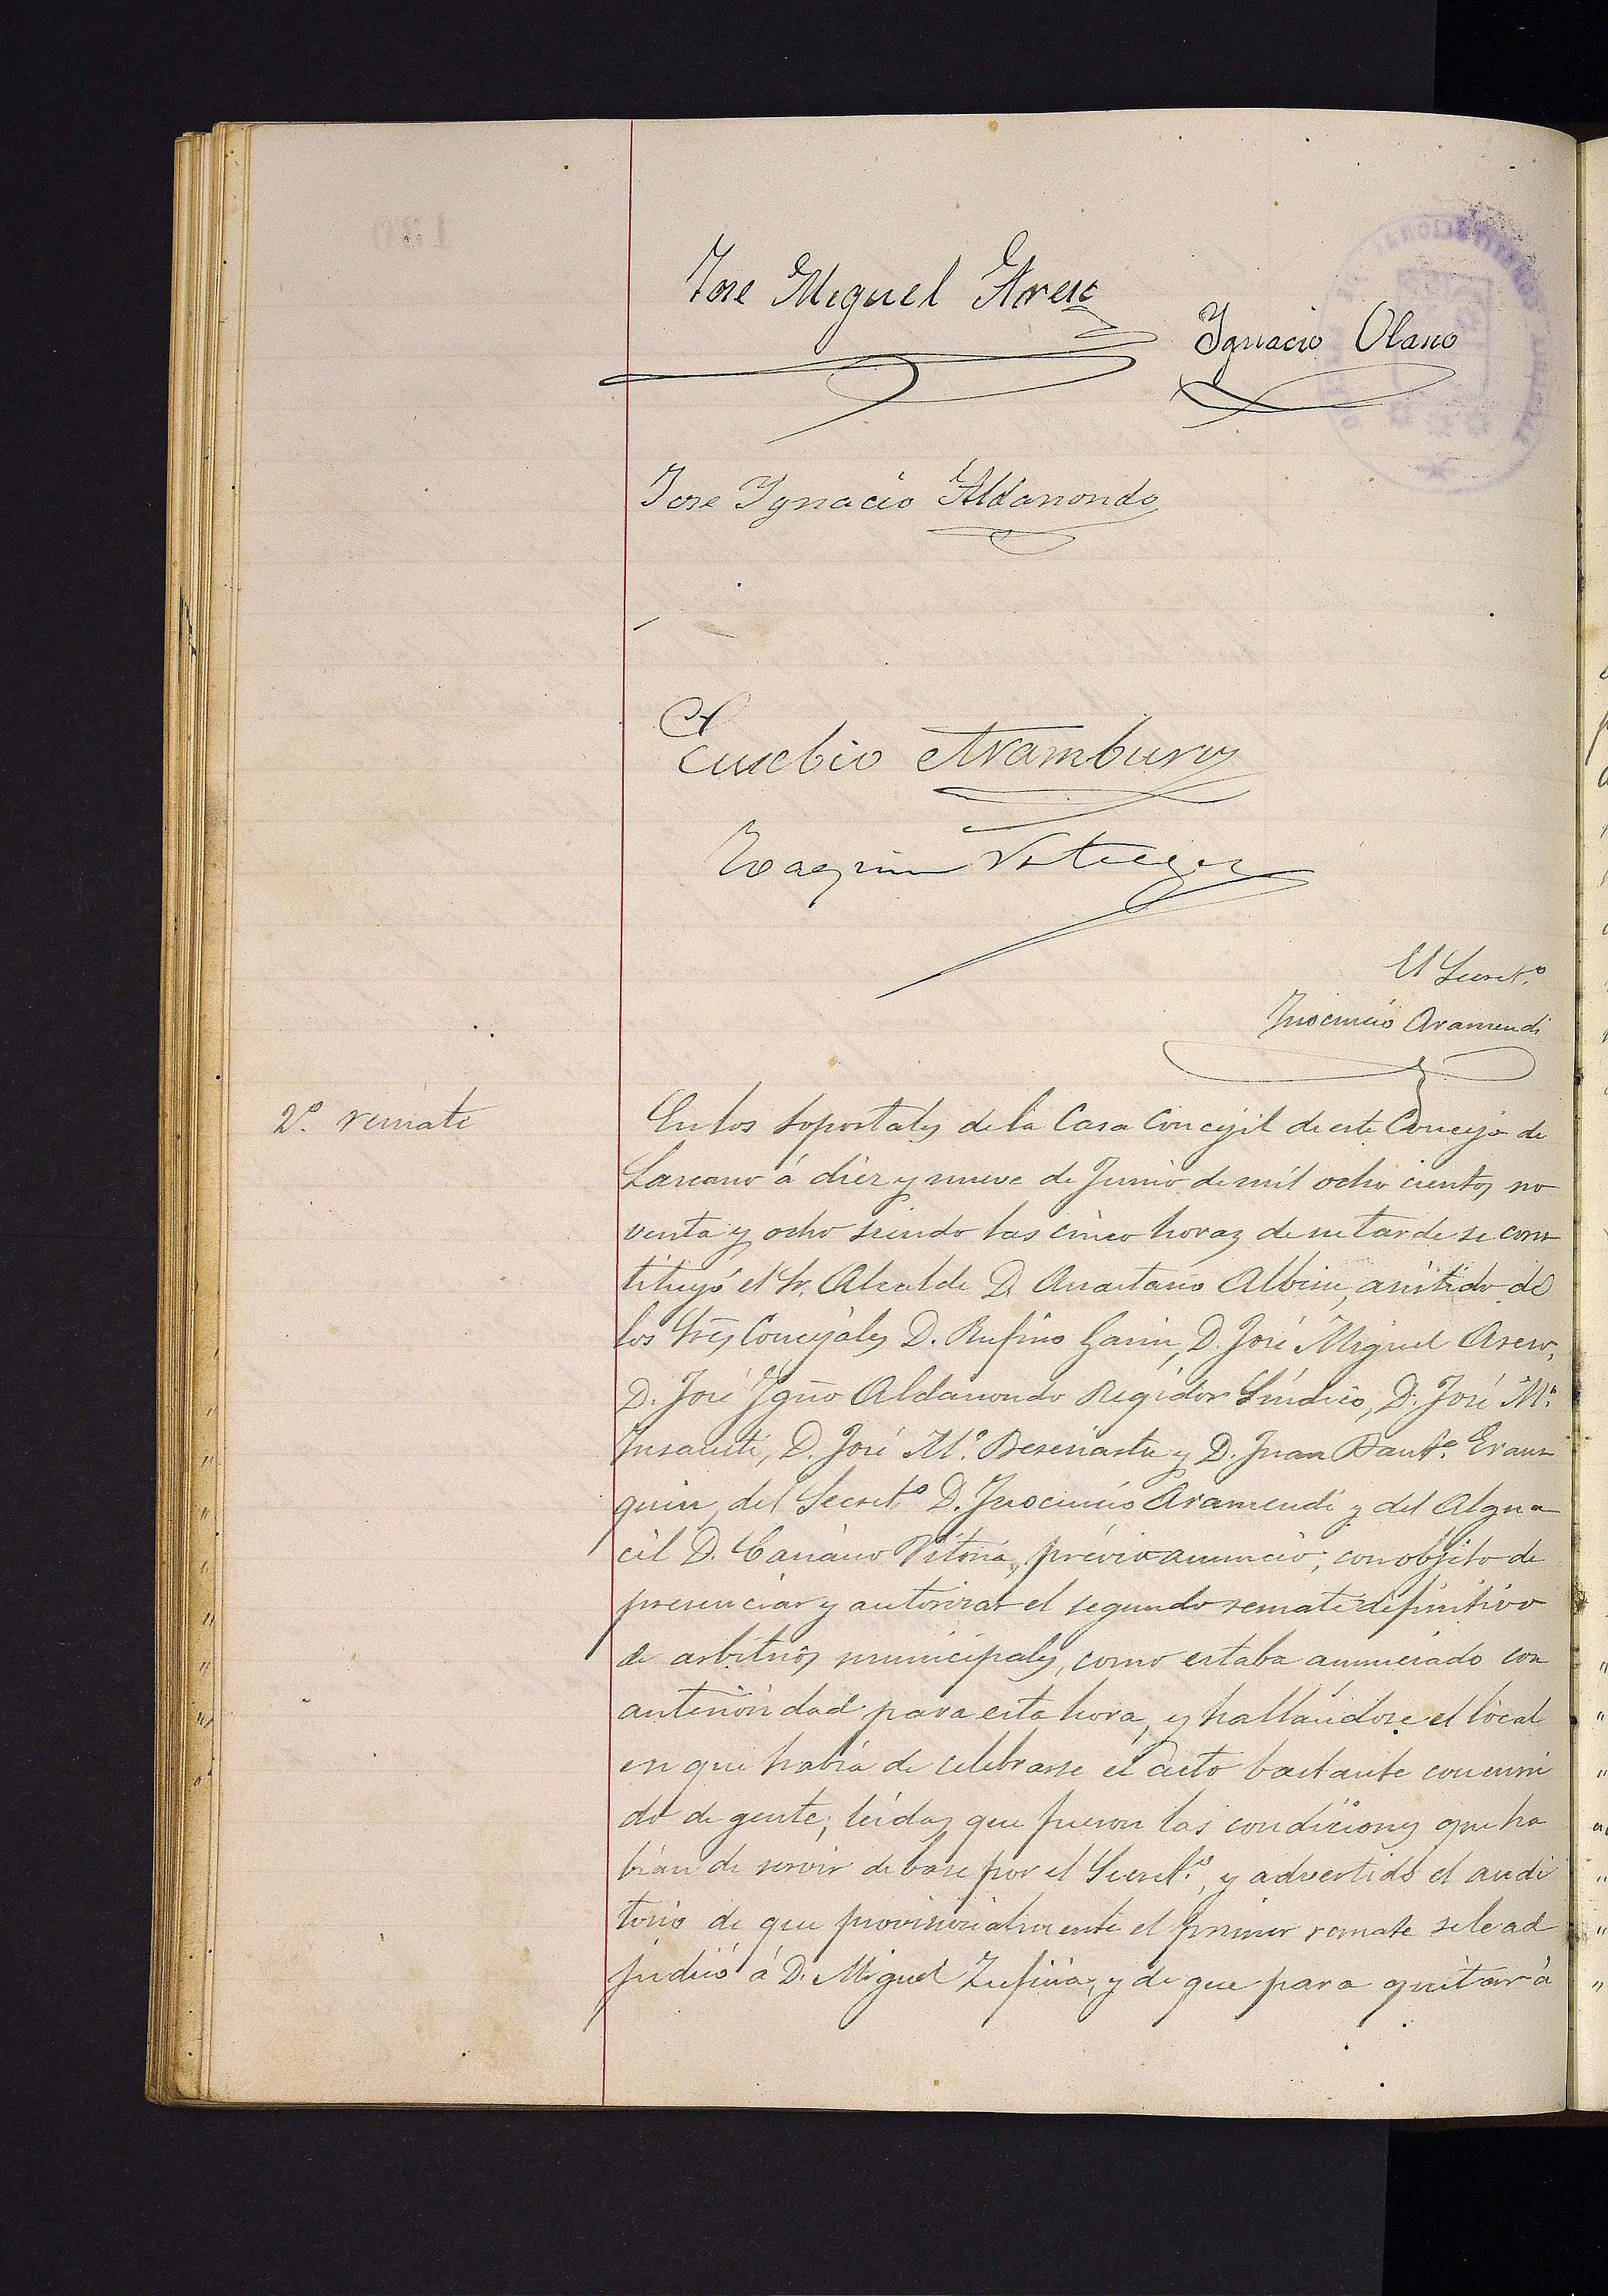 Jose Miguel
Ignacio Olano
Jose Ygnacio Aldanondo
Eusebio Aramburu
Joaquin
El Secret.º
Inocencio Aramendi
2º. remate
En los soportales de la Casa Concejil de este Concejo de
Lazcano á diez y nueve de Junio de mil ocho cientos no
venta y ocho siendo las cinco horas de su tarde se cons
tituyó el Sr. Alcalde D. Anastasio Albisu, asistido de
los Sres Concejales D. Rufino Garin, D. José Miguel
D. José Ygno Aldanondo Regidor Síndico, D. José Mª.
Insausti, D. José Mª. y D. Juan Bautª. Eraus
quin, del Secretº D. Inocencio Aramendi y del Algua
cil D. Vitoria, prévio anuncio, con objeto de
presenciar y autorizar el segundo remate definitivo
de arbitrios municipales, como estaba anunciado con
anterioridad para esta hora, y hallándose el local
en que habia de celebrarse el acto bastante concurri
do de gente, leidas que fueron las condiciones que ha
bian de servir de base por el Secretº., y advertido el audi
torio de que provisionalmente el primer remate se le ad
judicó á D. Miguel Zufiria, y de que para quitar á